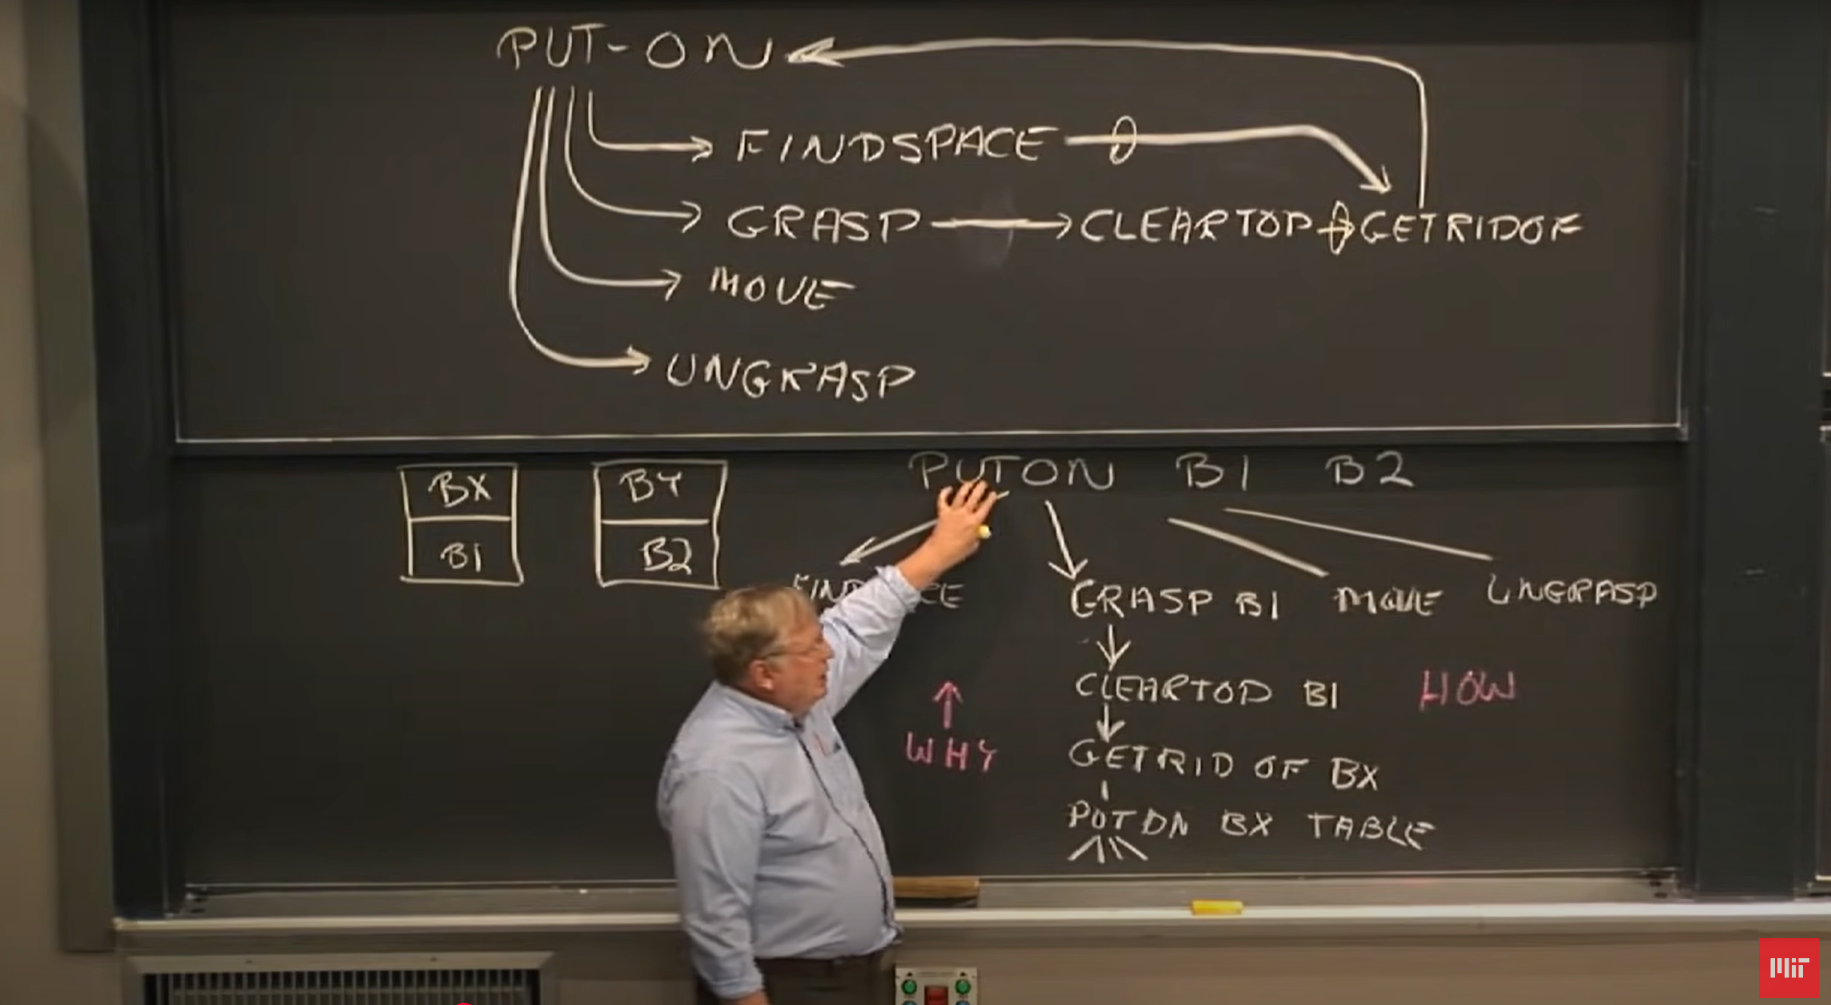 PUT-ON
FINDSPACE
GRASP CLEARTOP GETRIDOF
MOVE
UNGRASP
BX BY
B1 B2
PUTON B1 B2
GRASP B1 MOVE UNGRASP
CLEARTOP B1 HOW
WHY
GETRID OF BX
PUT ON BX TABLE
MIT